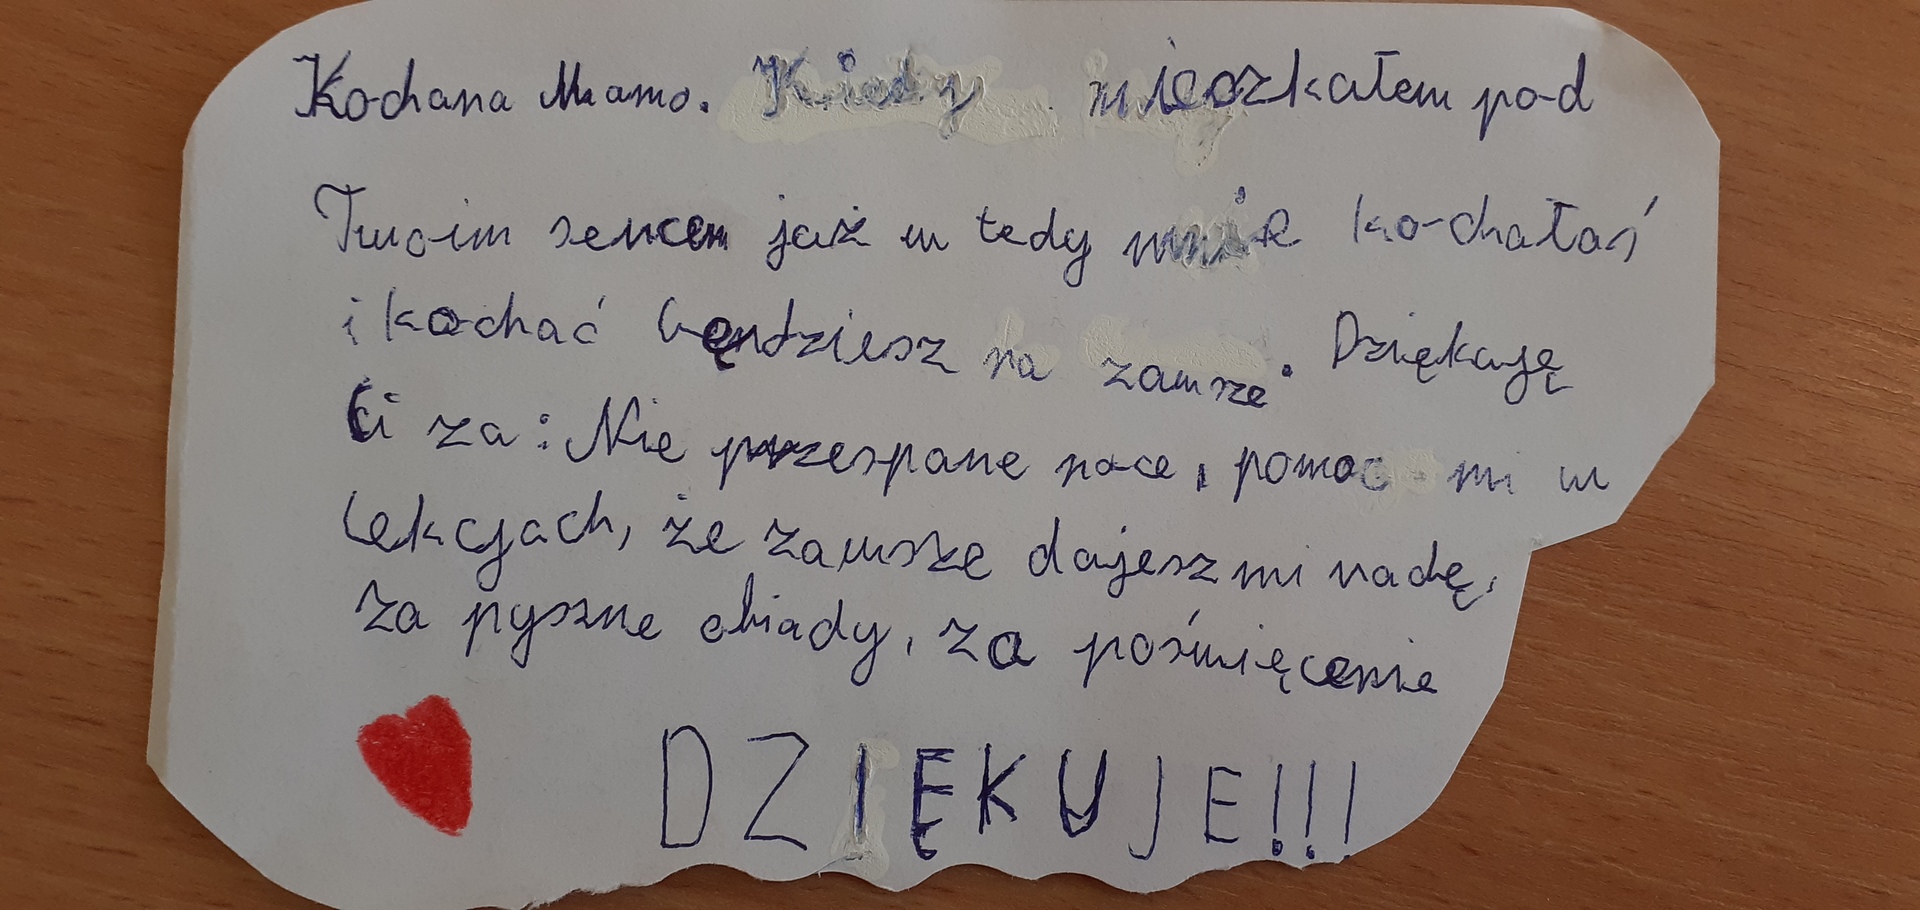 Kochana Mamo. Kiedy mieszkałem pod
Twoim sercem już w tedy mnie kochałaś
i kochać będziesz na zawsze. Dziękuję
Ci za: Nie przespane noce, pomoc mi w
lekcjach, że zawsze dajesz mi radę,
za pyszne obiady, za poświęcenie
DZIĘKUJE!!!